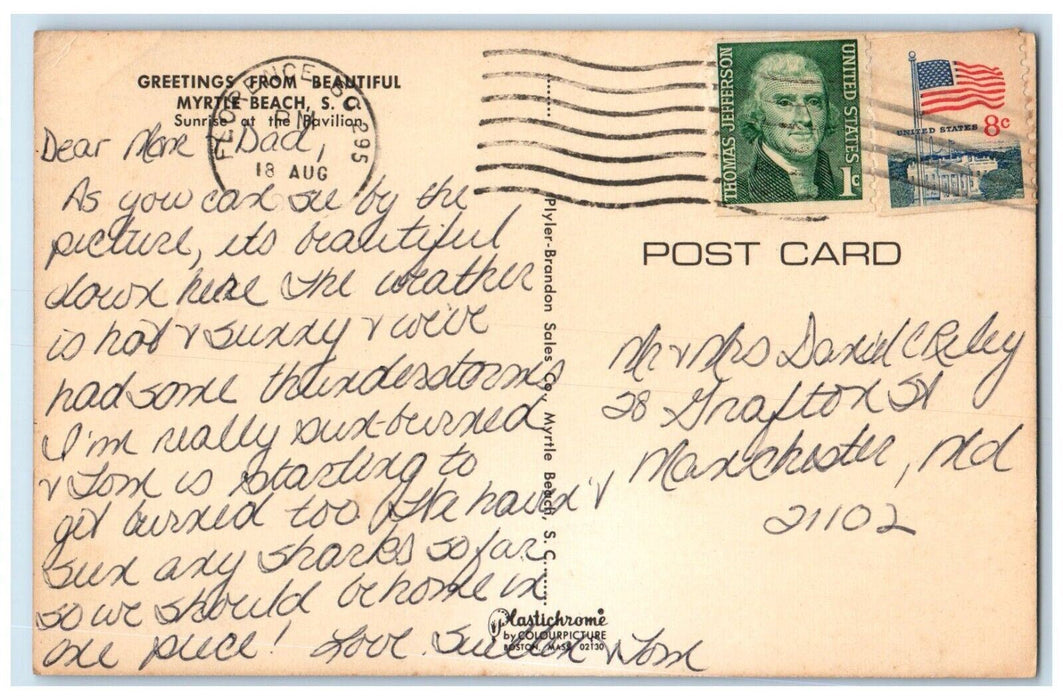 GREETINGS FROM BEAUTIFUL
MYRTLE BEACH, S. C.
Sunrise at the Pavilion
FLORENCE SC 295
PM
18 AUG
Dear Mom & Dad,
As you can see by the
picture, its beautiful
down here The weather
is hot & sunny & we've
had some thunderstorms
I'm really sun-burned
& Tom is starting to
get burned too. We haven't
seen any sharks so far
so we should be home in
one piece! Love Suellen & Tom
Plyler-Brandon Sales Co., Myrtle Beach, S. C.
Plastichrome
by COLOURPICTURE
BOSTON, MASS. 02130
THOMAS JEFFERSON
UNITED STATES
1c
UNITED STATES 8c
POST CARD
Mr & Mrs David C Reley
28 Grafton St
Manchester, Md
21102